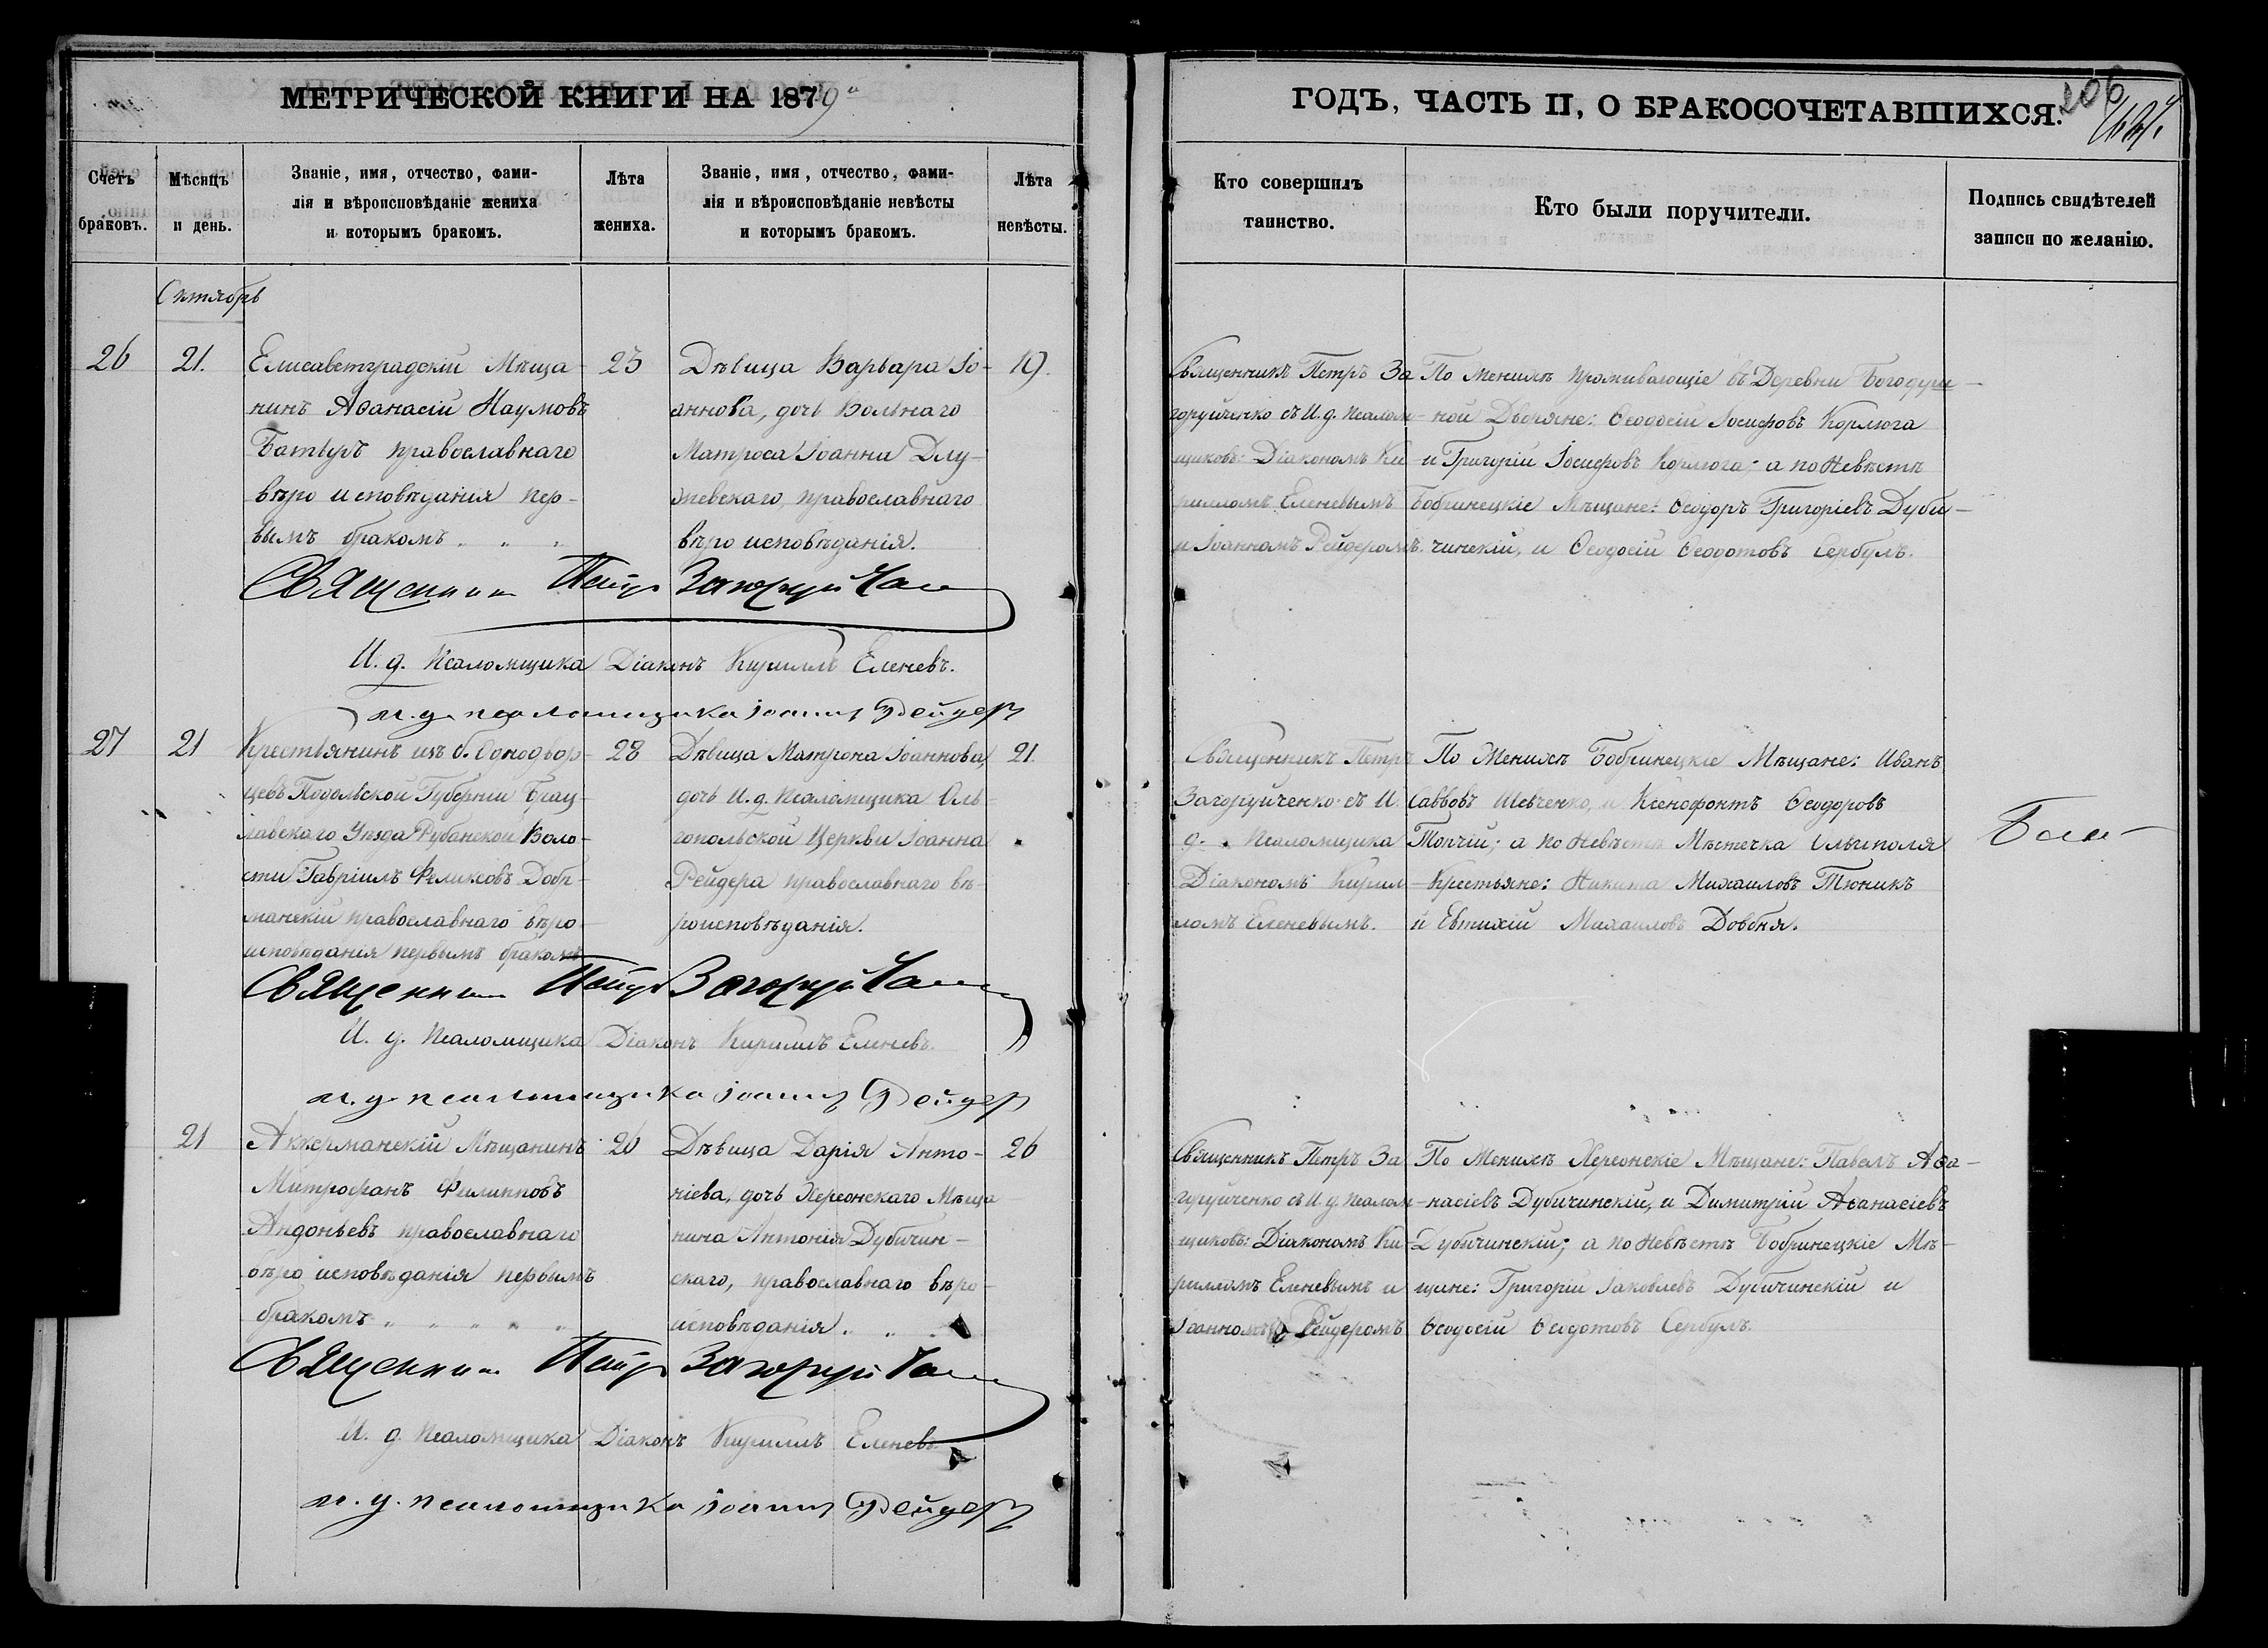 МЕТРИЧЕСКОЙ КНИГИ НА 1879
ГОДЪ, ЧАСТЬ II, О БРАКОСОЧЕТАВШИХСЯ.
206
Счетъ браковъ.
Мѣсяцъ и день.
Званіе, имя, отчество, фами-
лія и вѣроисповѣданіе жениха
и которымъ бракомъ.
Лѣта
жениха.
Званіе, имя, отчество, фами-
лія и вѣроисповѣданіе невѣсты
и которымъ бракомъ.
Лѣта
невѣсты.
Кто совершилъ
таинство.
Кто были поручители.
Подпись свидѣтелей
записи по желанію.
Октябрь
26
21.
Елисаветградскій Мѣща-
нинъ Аѳанасій Наумовъ
православнаго
вѣро исповѣданія пер-
вымъ бракомъ „ „ „
25
Дѣвица Варвара Іо-
аннова, дочь Вольнаго
Матроса Іоанна Длу-
жевскаго, православнаго
вѣро исповѣданія.
19.
Священникъ Петръ За
горуйченко съ И. д. псалом-
щиковъ: Діакономъ Ки
рилломъ Еленевымъ
и Іоанномъ Рейдеромъ.
По Женихѣ проживающіе въ Деревни Богодуш-
ной Дворяне: Ѳеодосій Іосифовъ Корлюга
и Григорій Іосифовъ Корлюга; а по Невѣстѣ
Бобринецкіе Мѣщане: Ѳеодоръ Григоріевъ Дуби-
чинскій, и Ѳеодосій Ѳеодотовъ Сербулъ.
Священникъ Петръ Загоруйченко
И. д. Псаломщика Діаконъ Кириллъ Еленевъ.
и. д. псаломщика Іоаннъ Рейдеръ
27
21
Крестьянинъ изъ б. Однодвор-
цевъ Подольской Губерніи Брац-
лавскаго Уѣзда Рубанской Воло-
сти Гавріилъ Феликсовъ Добр-
манскій православнаго вѣро-
исповѣданія первымъ бракомъ
28
Дѣвица Матрона Іоаннова,
дочь И. д. Псаломщика Оль-
гопольской Церкви Іоанна
Рейдера православнаго вѣ-
роисповѣданія.
21.
Священникъ Петръ
Загоруйченко съ И.
д. Псаломщика
Діакономъ Кирил-
ломъ Еленевымъ.
По Женихѣ Бобринецкіе Мѣщане: Иванъ
Саввовъ Шевченко, и Ксенофонтъ Ѳеодоровъ
Топчій; а по Невѣстѣ Мѣстечка Ольгополя
Крестьяне: Никита Михаиловъ Тюникъ
и Евтихій Михаиловъ Довбня.
Священникъ Петръ Загоруйченко
И. д. Псаломщика Діаконъ Кириллъ Еленевъ.
и. д. псаломщика Іоаннъ Рейдеръ
21
Аккерманскій Мѣщанинъ
Митрофанъ Филипповъ
Андоньевъ православнаго
вѣро исповѣданія первымъ
бракомъ „ „ „ „ „
26
Дѣвица Дарія Анто-
ніева, дочь Херсонскаго Мѣща
нина Антонія Дубичин-
скаго, православнаго вѣро-
исповѣданія. „ „
26
Священникъ Петръ За
горуйченко съ И. д. Псалом-
щиковъ: Діакономъ Ки-
рилломъ Еленевымъ и
Іоанномъ Рейдеромъ
По Женихѣ Херсонскіе Мѣщане: Павелъ Аѳа-
насіевъ Дубичинскій, и Димитрій Аѳанасіевъ
Дубичинскій; а по Невѣстѣ Бобринецкіе Мѣ-
щане: Григорій Іаковлевъ Дубичинскій и
Ѳеодосій Ѳеодотовъ Сербулъ.
Священникъ Петръ Загоруйченко
И. д. Псаломщика Діаконъ Кириллъ Еленевъ
и. д. псаломщика Іоаннъ Рейдеръ